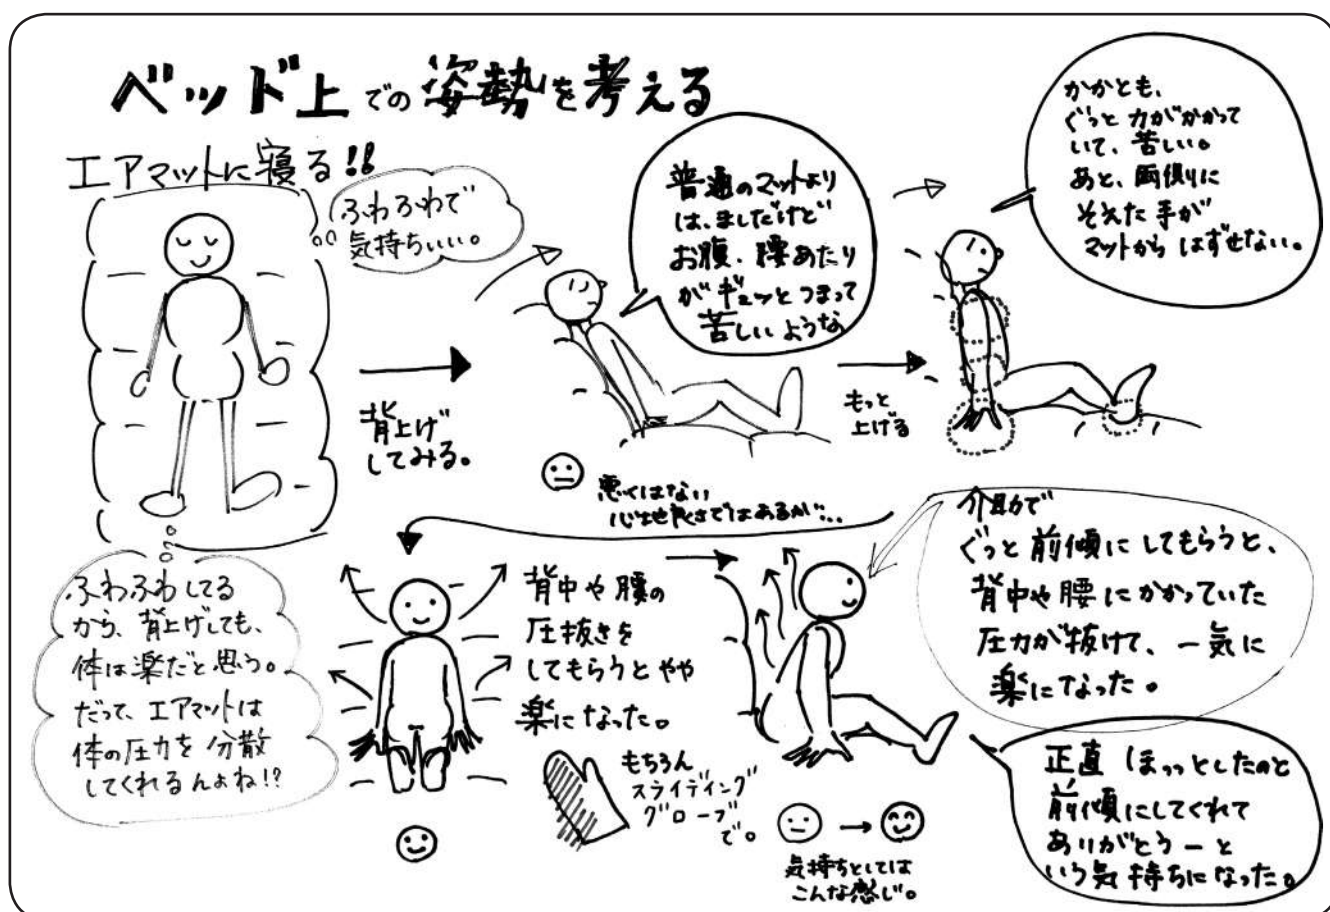 ベッド上での姿勢を考える
エアマットに寝る!!
ふわふわで
気持ちいい。
普通のマットより
は、ましだけど
お腹、腰あたり
がギュッとつまって
苦しいような
かかとも、
ぐっと力がかかって
いて、苦しい。
あと、両側に
そえた手が
マットからはずせない。
背上げ
してみる。
もっと
上げる
悪くはない
心地良さではあるが…
ふわふわしてる
から、背上げしても、
体は楽だと思う。
だって、エアマットは
体の圧力を分散
してくれるんよね!?
背中や腰の
圧抜きを
してもらうとやや
楽になった。
もちろん
スライディング
グローブ
で。
介助で
ぐっと前傾にしてもらうと、
背中や腰にかかっていた
圧力が抜けて、一気に
楽になった。
気持ちとしては
こんな感じ。
正直ほっっとしたのと
前傾にしてくれて
ありがとうーと
いう気持ちになった。